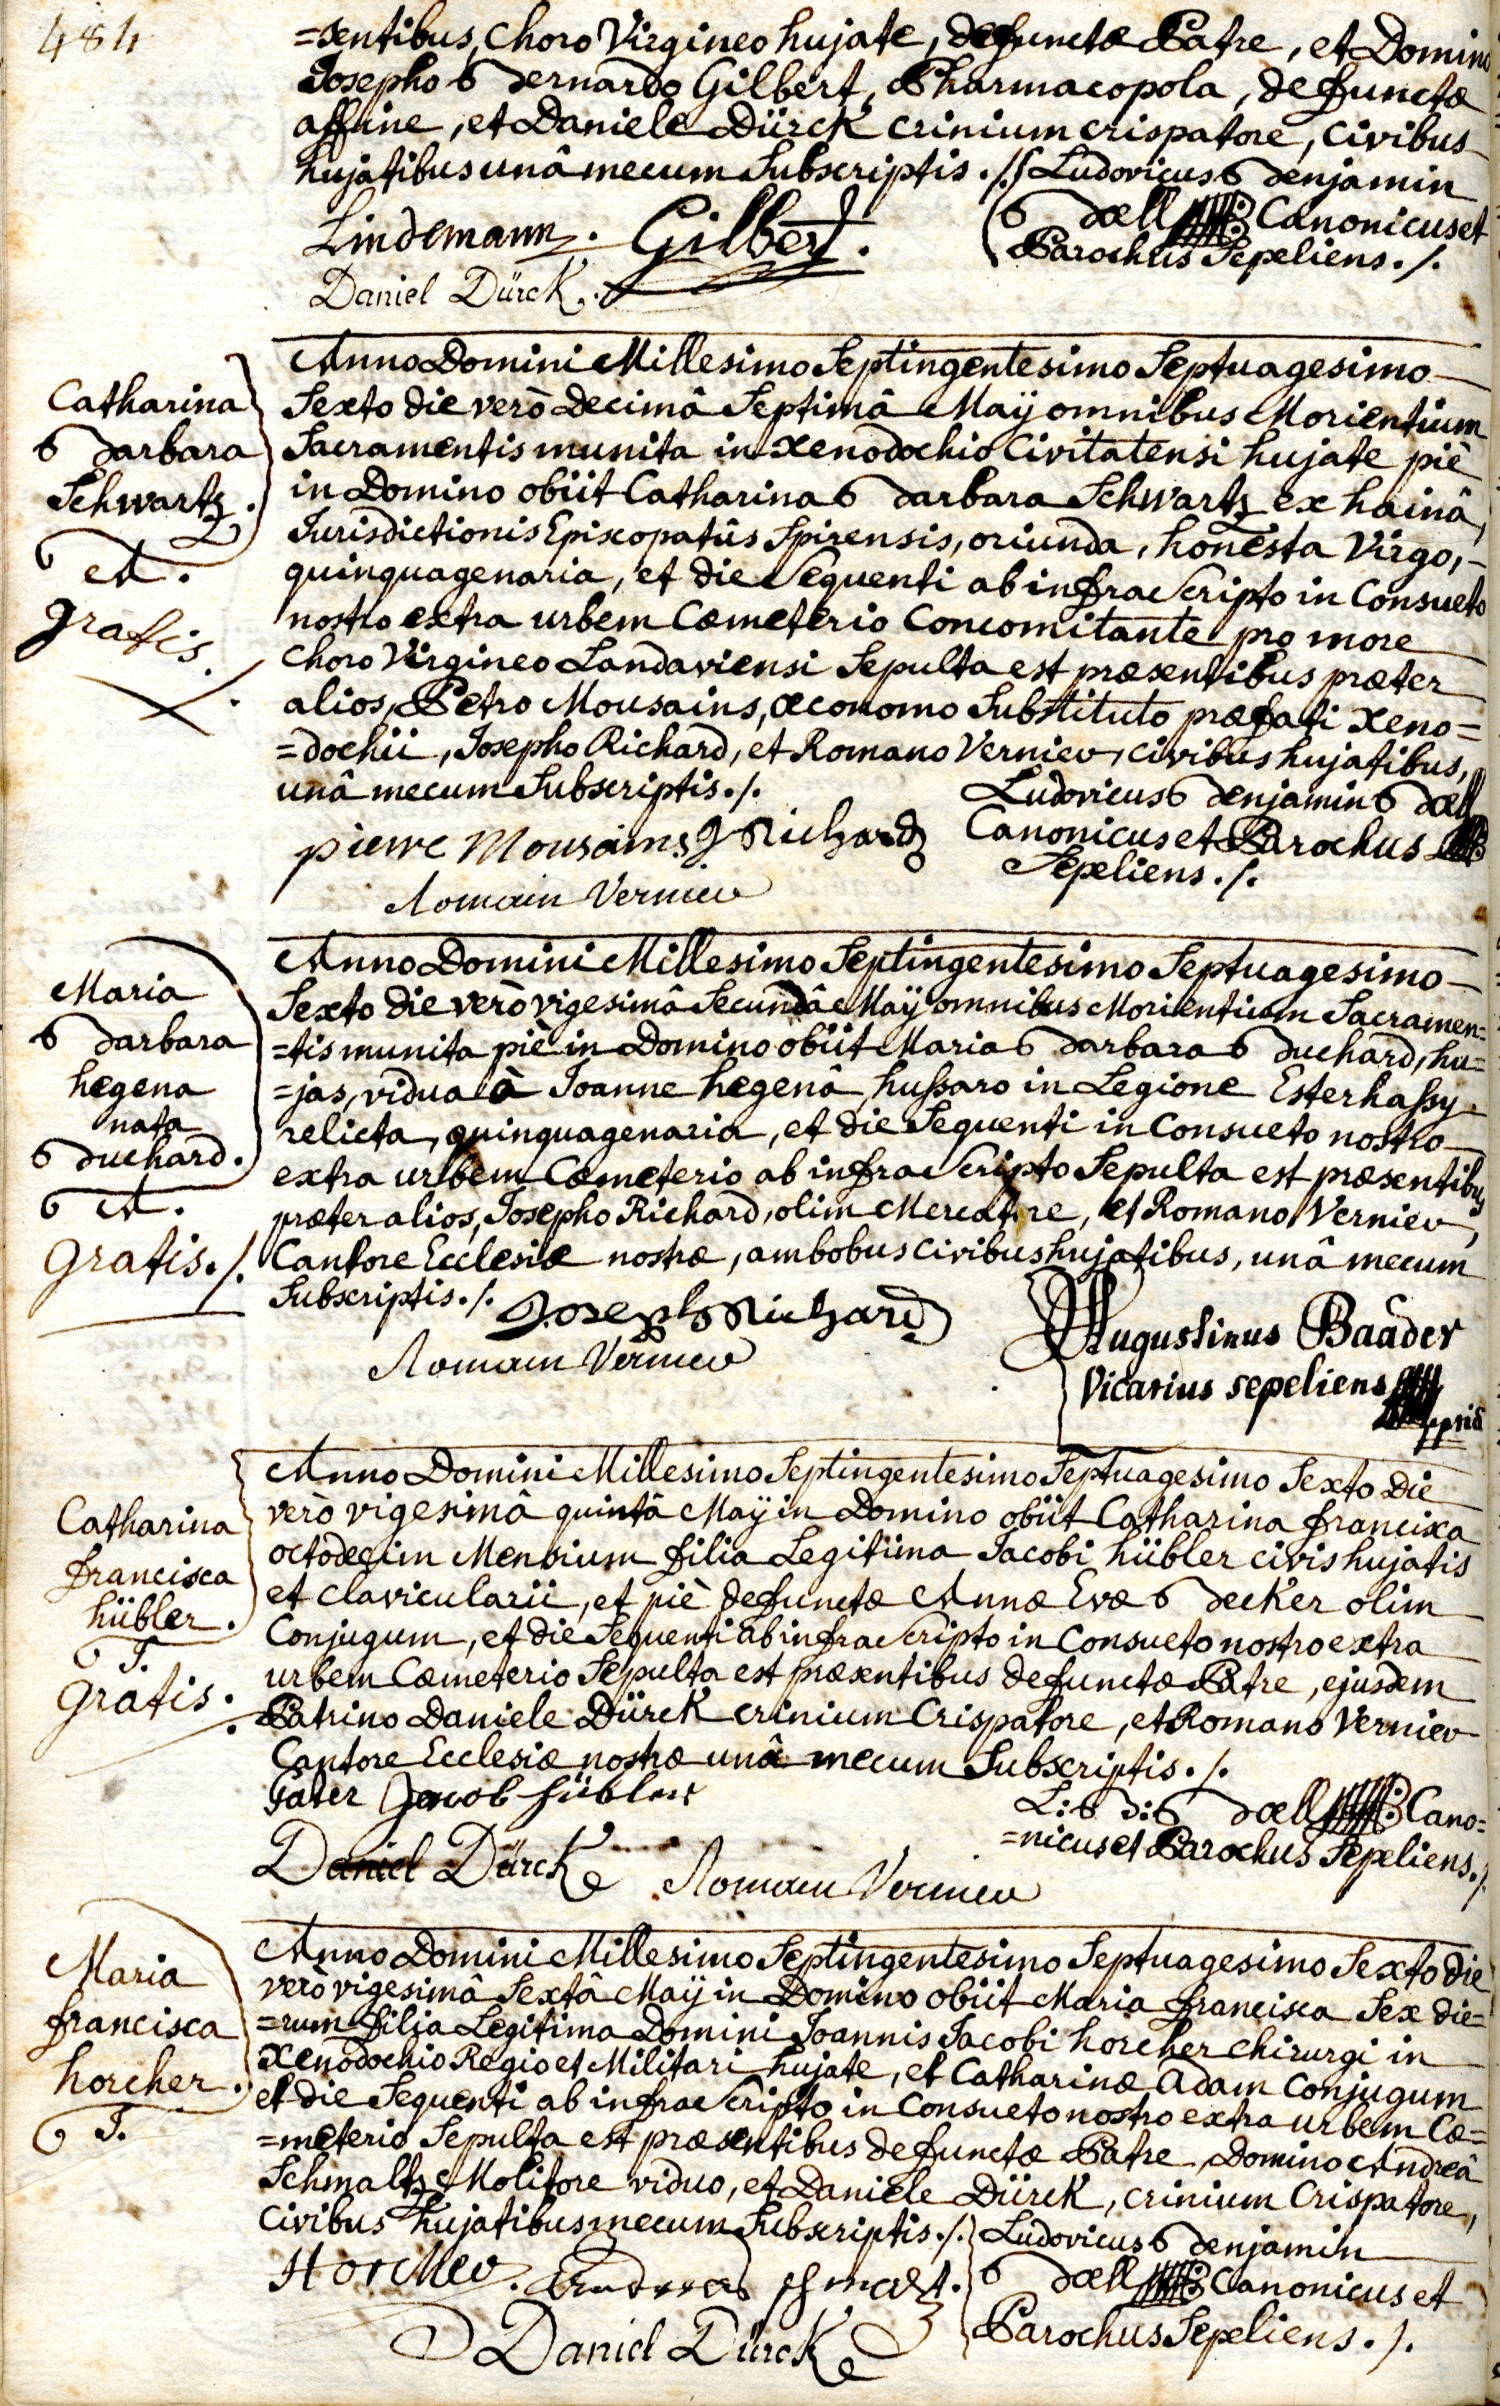 484
=sentibus, Choro Virgineo hujate, defunctæ Patre, et Domino
Josepho Bernardo Gilbert, Pharmacopola, defunctæ
affine, et Daniele Dürck crinium crispatore, civibus
hujatibus unâ mecum Subscriptis ./. Ludovicus Benjamin
Boell Canonicus et
Parochus Sepeliens ./.
Lindemann. Gilbert.
Daniel Dürck.
Catharina
Barbara
Schwartz.
Ad.
gratis.
Anno Domini Millesimo Septingentesimo Septuagesimo
Sexto die verò Decimâ Septimâ Maÿ omnibus Morientium
Sacramentis munita in Xenodochio Civitatensi hujate piè
in Domino obiit Catharina Barbara Schwartz ex hainâ,
Jurisdictionis Episcopatûs Spirensis, oriunda, honesta Virgo,
quinquagenaria, et die Sequenti ab infrascripto in Consueto
nostro extra urbem Cœmeterio Concomitante pro more
Choro Virgineo Landaviensi Sepulta est præsentibus præter
alios, Petro Mousains, œconomo Substituto præfati Xeno=
=dochii, Josepho Richard, et Romano Vernier, civibus hujatibus,
unâ mecum Subscriptis ./.
Ludovicus Benjamin Boell
Canonicus et Parochus
Sepeliens ./.
pierre Mousains J Richard
Romain Vernier
Maria
Barbara
hegena
nata
Buchard.
Ad.
Gratis ./.
Anno Domini Millesimo Septingentesimo Septuagesimo
Sexto die verò vigesimâ Secundâ Maÿ omnibus Morientium Sacramen=
=tis munita piè in Domino obiit Maria Barbara Buchard, hu=
=jas, vidua à Joanne hegenâ, hussaro in Legione Esterhassy
relicta, quinquagenaria, et die Sequenti in Consueto nostro
extra urbem Cœmeterio ab infrascripto Sepulta est præsentibus
præter alios, Josepho Richard, olim Mercatore, et Romano Vernier,
Cantore Ecclesiæ nostræ, ambobus civibus hujatibus, unâ mecum
Subscriptis ./.
Joseph Richard
Romain Vernier
Augustinus Baader
Vicarius sepeliens
Catharina
francisca
hübler.
I.
Gratis.
Anno Domini Millesimo Septingentesimo Septuagesimo Sexto die
verò vigesimâ quintâ Maÿ in Domino obiit Catharina francisca
octodecim Mensium filia Legitima Jacobi hübler civis hujatis
et clavicularii, et piè defunctæ Annæ Evæ Becker olim
Conjugum, et die Sequenti ab infrascripto in Consueto nostro extra
urbem Cœmeterio Sepulta est præsentibus defunctæ Patre, ejusdem
Patrino Daniele Dürck crinium Crispatore, et Romano Vernier
Cantore Ecclesiæ nostræ unâ mecum Subscriptis ./.
Vater Jacob hübler
L: B: Boell Cano=
=nicus et Parochus Sepeliens ./.
Daniel Dürck
Romain Vernier
Maria
francisca
horcher.
I.
Anno Domini Millesimo Septingentesimo Septuagesimo Sexto die
verò vigesimâ Sextâ Maÿ in Domino obiit Maria francisca Sex die=
=rum filia Legitima Domini Joannis Jacobi horcher chirurgi in
Xenodochio Regio et Militari hujate, et Catharinæ Adam Conjugum
et die Sequenti ab infrascripto in Consueto nostro extra urbem Cœ=
=meterio Sepulta est præsentibus defunctæ Patre, Domino Andreâ
Schmaltz Molitore viduo, et Daniele Dürck, crinium Crispatore,
civibus hujatibus mecum Subscriptis ./. Ludovicus Benjamin
Boell Canonicus et
Parochus Sepeliens ./.
Horcher. Andreas schmaltz.
Daniel Dürck